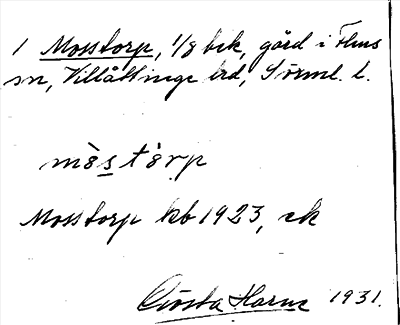 1 Mosstorp, 1/8 bek, gård i Flens
sn, Villåttinge hrd, Sörml. l.
mòstòrp
Mosstorp kb 1923, ek
Gösta Harne 1931.